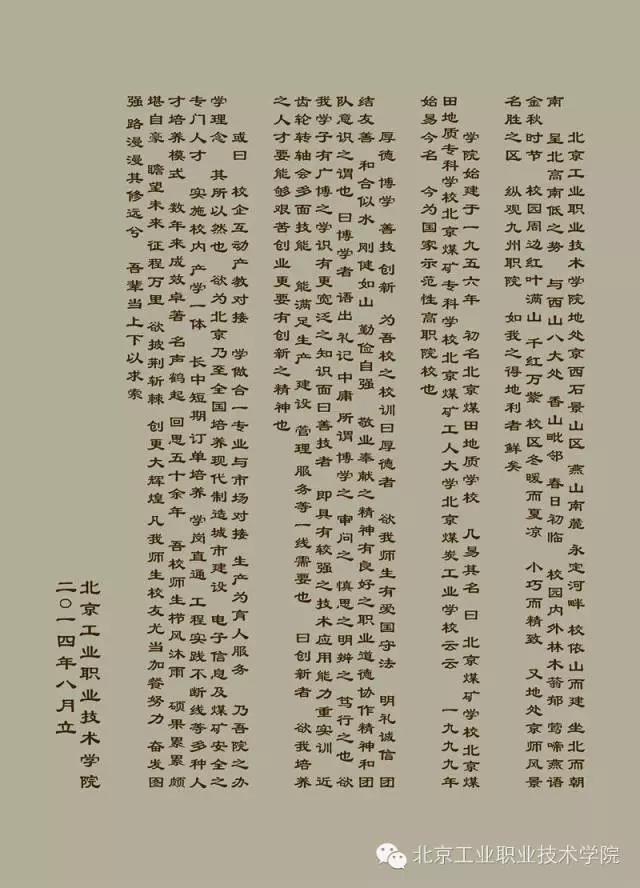 北京工业职业技术学院地处京西石景山区 燕山南麓 永定河畔 校依山而建 坐北而朝
南 呈北高南低之势 与西山八大处 香山毗邻 春日初临 校园内外林木蓊郁 莺啼燕语
金秋时节 校园周边红叶满山 千红万紫 校区冬暖而夏凉 小巧而精致 又地处京师风景
名胜之区 纵观九州职院 如我之得地利者 鲜矣
学院始建于一九五六年 初名北京煤田地质学校 几易其名 曰 北京煤矿学校北京煤
田地质专科学校北京煤矿专科学校北京煤矿工人大学北京煤炭工业学校云云 一九九九年
始易今名 今为国家示范性高职院校也
厚德 博学 善技 创新 为吾校之校训曰厚德者 欲我师生有爱国守法 明礼诚信 团
结友善 和合似水 刚健如山 勤俭自强 敬业奉献之精神有良好之职业道德协作精神和团
队意识之谓也 曰博学者 语出礼记中庸 所谓博学之 审问之 慎思之明辨之 笃行之也 欲
我学子有广博之学识有更宽泛之知识面曰善技者 即具有较强之技术应用能力重实训 近
齿轮转轴会多面技能 能满足生产 建设 管理 服务等一线需要也 曰创新者 欲我培养
之人才要能够艰苦创业更要有创新之精神也
或曰 校企互动产教对接 学做合一专业与市场对接 生产为育人服务 乃吾院之办
学理念 其所以然也 欲为北京乃至全国培养现代制造城市建设 电子信息及煤矿安全之
专门人才 实施校内产学一体 长中短期 订单培养 学岗直通 工程实践不断线等多种人
才培养模式 数年来成效卓著 名声鹤起 回思五十余年 吾校师生栉风沐雨 硕果累累颇
堪自豪 瞻望未来 征程万里 欲披荆斩棘 创更大辉煌 凡我师生校友尤当加餐努力 奋发图
强 路漫漫其修远兮 吾辈当上下以求索
北京工业职业技术学院
二〇一四年八月立
北京工业职业技术学院